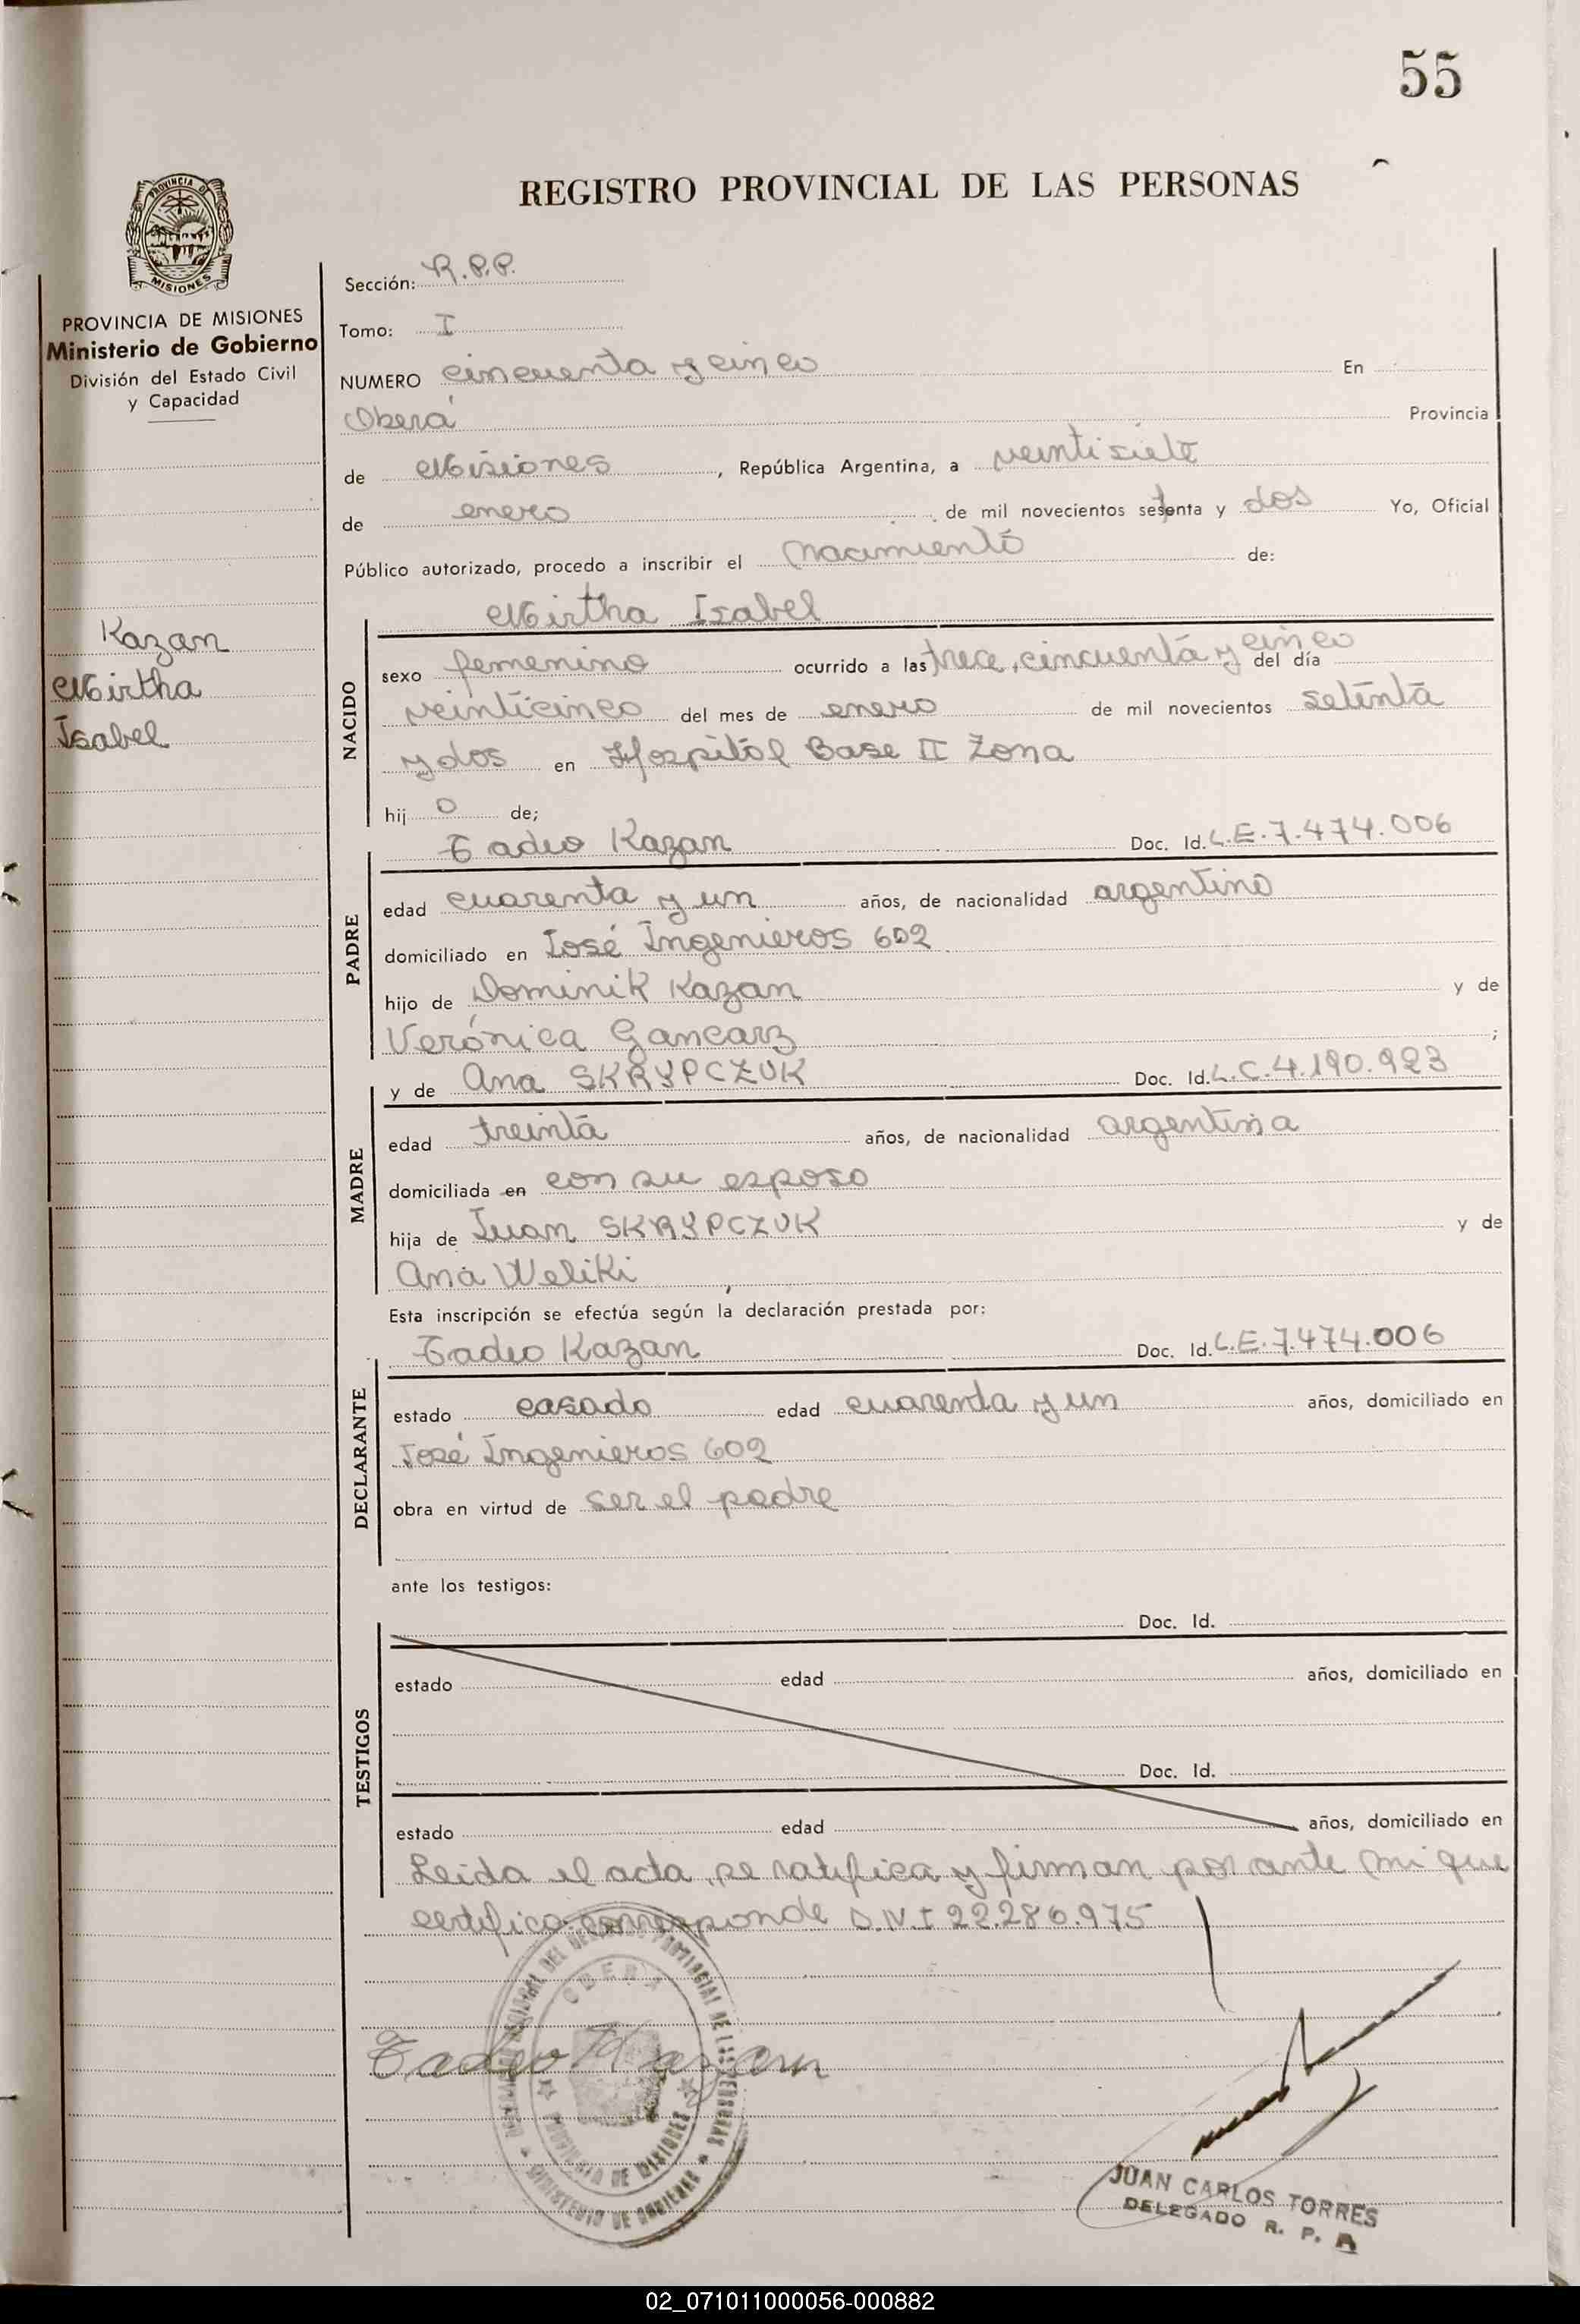 55
REGISTRO PROVINCIAL DE LAS PERSONAS
PROVINCIA D
MISIONES
PROVINCIA DE MISIONES
Ministerio de Gobierno
División del Estado Civil
y Capacidad
Kazan
Mirtha
Isabel
Sección: R.P.P.
Tomo: I
NUMERO cincuenta y cinco En
Oberá Provincia
de Misiones, República Argentina, a veintisiete
de enero de mil novecientos setenta y dos Yo, Oficial
Público autorizado, procedo a inscribir el nacimiento de:
NACIDO
Mirtha Isabel
sexo femenino ocurrido a las trece, cincuenta y cinco del día
veinticinco del mes de enero de mil novecientos setenta
y dos en Hospital Base II Zona
hij o de;
PADRE
Tadeo Kazan Doc. Id. L.E. 7.474.006
edad cuarenta y un años, de nacionalidad argentino
domiciliado en José Ingenieros 602
hijo de Dominik Kazan y de
Verónica Gancarz ;
MADRE
y de Ana SKRYPCZUK Doc. Id. L.C. 4.190.923
edad treinta años, de nacionalidad argentina
domiciliada en con su esposo
hija de Juan SKRYPCZUK y de
Ana Weliki
Esta inscripción se efectúa según la declaración prestada por:
DECLARANTE
Tadeo Kazan Doc. Id. L.E. 7.474.006
estado casado edad cuarenta y un años, domiciliado en
José Ingenieros 602
obra en virtud de ser el padre
ante los testigos:
TESTIGOS
Doc. Id.
estado edad años, domiciliado en
Doc. Id.
estado edad años, domiciliado en
Leida el acta, se ratifica y firman por ante mi que
certifico corresponde D.N.I 22.286.975
OBERA
PROVINCIAL DE LAS PERSONAS
PROVINCIA DE MISIONES
MINISTERIO DE GOBIERNO
Tadeo Kazan
JUAN CARLOS TORRES
DELEGADO R. P. P.
02_071011000056-000882